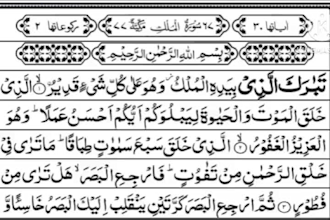 اٰیاتها ۳۰ ۶۷ سُوْرَةُ الْمُلْكِ مَكِّيَّةٌ ۷۷ رکوعاتها ۲
بِسْمِ اللّٰهِ الرَّحْمٰنِ الرَّحِيْمِ
تَبٰرَكَ الَّذِيْ بِيَدِهِ الْمُلْكُ وَهُوَ عَلٰى كُلِّ شَيْءٍ قَدِيْرُ ۙ۝ الَّذِيْ
خَلَقَ الْمَوْتَ وَالْحَيٰوةَ لِيَبْلُوَكُمْ اَيُّكُمْ اَحْسَنُ عَمَلًا ؕ وَهُوَ
الْعَزِيْزُ الْغَفُوْرُ ۙ۝ الَّذِيْ خَلَقَ سَبْعَ سَمٰوٰتٍ طِبَاقًا ؕ مَا تَرٰى فِيْ
خَلْقِ الرَّحْمٰنِ مِنْ تَفٰوُتٍ ؕ فَارْجِعِ الْبَصَرَ ۙ هَلْ تَرٰى مِنْ
فُطُوْرٍ ۝ ثُمَّ ارْجِعِ الْبَصَرَ كَرَّتَيْنِ يَنْقَلِبْ اِلَيْكَ الْبَصَرُ خَاسِئًا وَّ